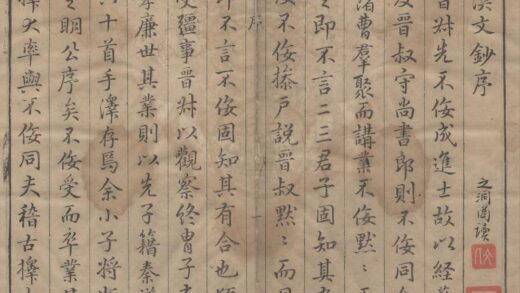 之洞圈讀
文鈔序
晉叔先不佞成進士故以經
晉叔守尚書郎則不佞同
諸曹羣聚而講業不佞默〻
即不言二三君子固知其
不佞㨆戶說晉叔默〻而
序
一
不言不佞固知其有合也
疆事晉叔以觀察終胄子
孝廉世其業則以先子籍秦
十首手澤存焉余小子將
明公序矣不佞受而卒業
大率與不佞同夫稽古擇